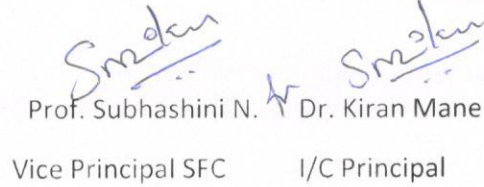 Prof. Subhashini N. for Dr. Kiran Mane
Vice Principal SFC I/C Principal